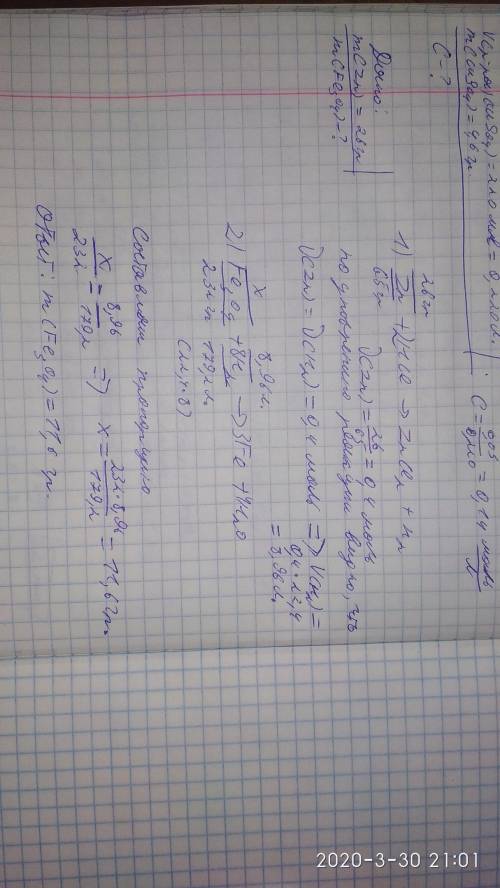 Vр-ра(CuSO₄) = 210 мл = 0,210 л.
m(CuSO₄) = 4,6 гр.
C - ?
C = 0,03 / 0,210 = 0,14 моль/л
Дано:
m(Zn) = 26 гр
m(Fe₃O₄) - ?
26 гр
1) Zn + 2HCl → ZnCl₂ + H₂
65 гр
ν(Zn) = 26/65 = 0,4 моль
по уравнению реакции видно, что
ν(Zn) = ν(H₂) = 0,4 моль ⇒ V(H₂) =
0,4 · 22,4
= 8,96 л.
x 8,96 л.
2) Fe₃O₄ + 4H₂ → 3Fe + 4H₂O
232 гр 179,2 л.
Составляем пропорцию
x/232 = 8,96/179,2 ⇒ x = 232·8,96/179,2 = 11,6 гр.
Ответ: m(Fe₃O₄) = 11,6 гр.
2020-3-30 21:01